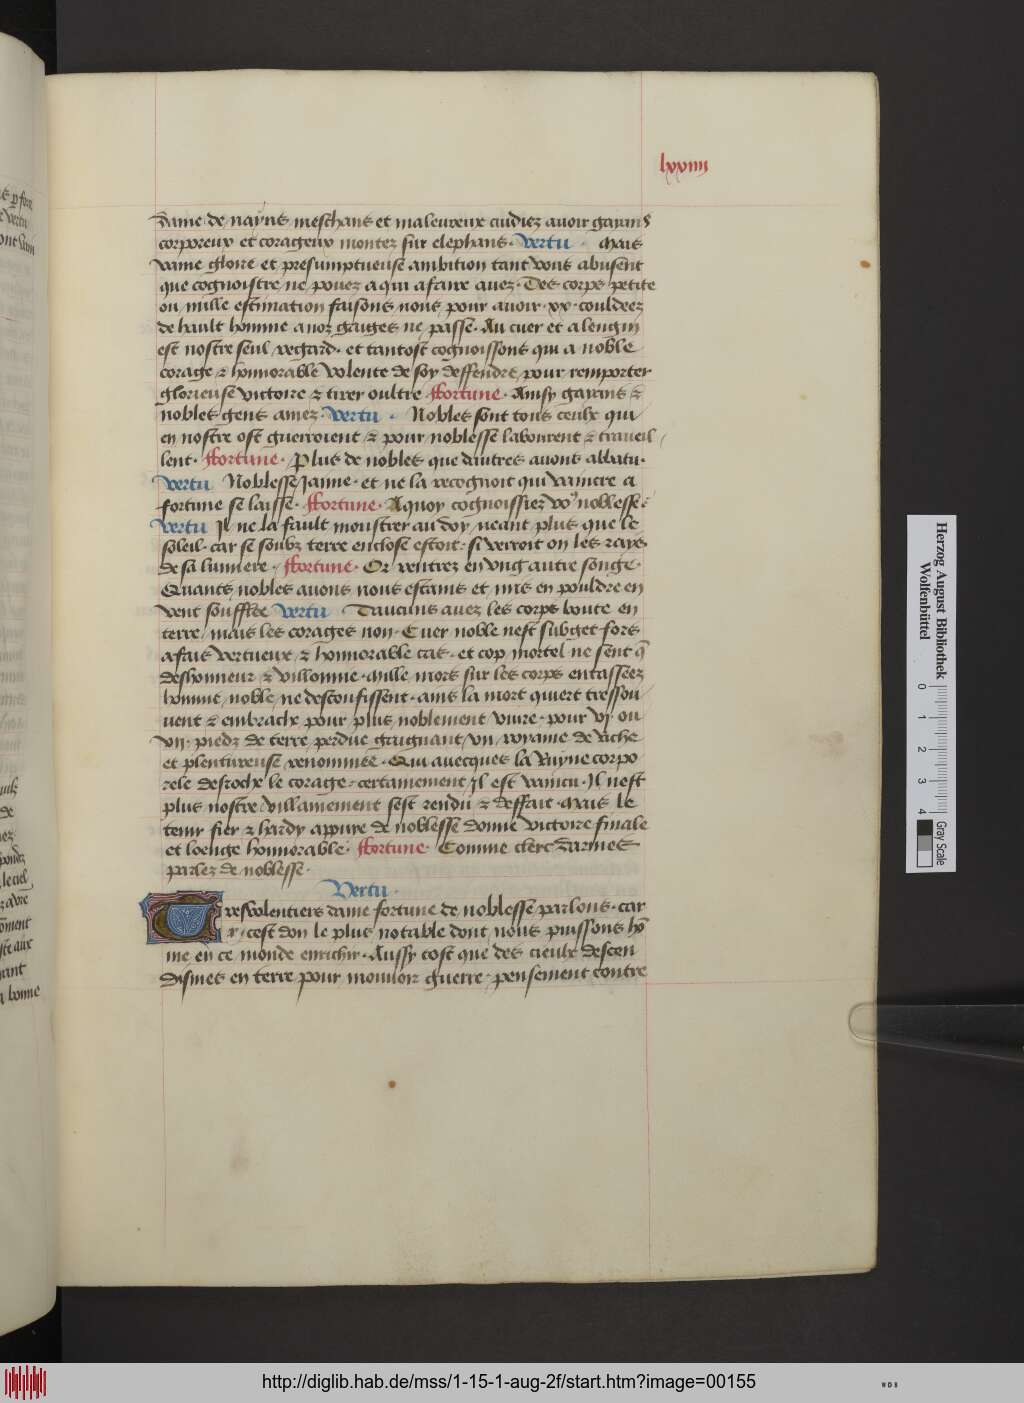 lxxiiij
Dame de nayns meschans et maleureux cudiez auoir gayans
corporeux et corageux montez sur elephans. Vertu. Mais
vaine gloire et presumptueuse ambition tant vous abusent
que cognoistre ne pouez a qui afaire auez. Des corps petite
ou nulle estimation faisons nous pour auoir .xx. couldeez
de hault homme a noz gauges ne passe. Au cuer et a lengin
est nostre seul regard. et tantost cognoissons qui a noble
corage & honnorable volente de soy deffendre, pour remporter
glorieuse victoire & tirer oultre. ffortune. Ainsy gayans &
nobles gens amez. Vertu. Nobles sont tous ceulx qui
en nostre ost guerroient & pour noblesse labourent & traueil
lent. ffortune. Plus de nobles que dautres auons abbatu.
Vertu Noblesse Jamie. et ne la recognoit qui vaincre a
fortune se laisse. ffortune. A quoy cognoissiez vo9 noblesse.
Vertu Jl ne la fault moustrer au doy neant plus que le
soleil. car se soubz terre enclose estoit. si verroit on les rays
de sa lumiere. ffortune. Or rentrez en vng autre songe.
Quants nobles auons nous estains et mis en pouldre en
vent soufflee Vertu Daucuns auez les corps boute en
terre, mais les corages non. Cuer noble nest subget fors
a fais vertueux & honnorable cas. et cop mortel ne sent q̃
deshonneur & villonnie. Mille mors sur les corps entasseez
homme noble ne desconfissent. ains la mort quiert tressou
uent & embrache pour plus noblement viure. pour vj. ou
vij. piedz de terre perdue gaignant vn royame de riche
et plentureuse renommee. Qui auecques la Ruyne corpo
rele desroche le corage. certainement Jl est vaincu. Jl nest
plus nostre villainement sest rendu & deffait. Mais le
tenir fier & hardy appuye de noblesse donne victoire finale
et loenge honnorable. ffortune. Comme clerc Darmes
parlez de noblesse.
Vertu.
Tresvolentiers dame fortune de noblesse parlons. car
cest don le plus notable dont nous puissons hõ
me en ce monde enrichir. Aussy tost que des cieulx descen
dismes en terre pour mouuoir guerre. pensement contre
Herzog August Bibliothek
Wolfenbüttel
0 1 2 3 4
Gray Scale
http://diglib.hab.de/mss/1-15-1-aug-2f/start.htm?image=00155